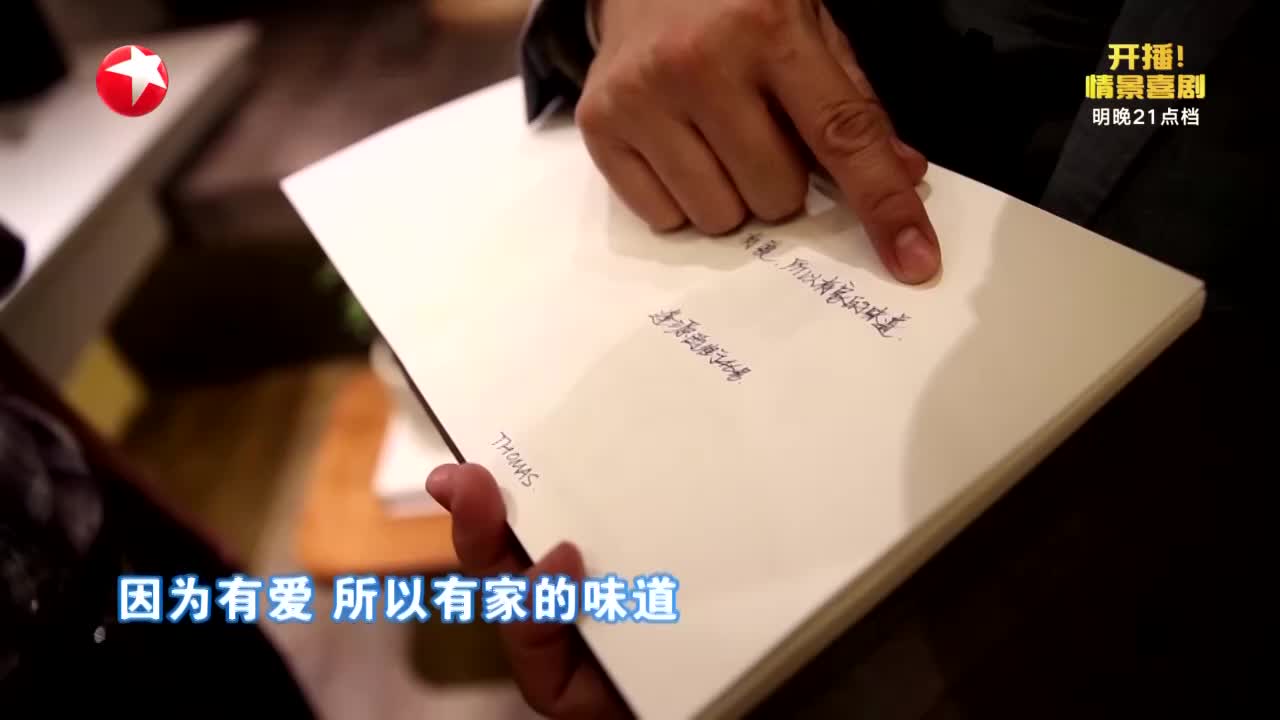 开播!
情景喜剧
明晚21点档
有爱,所以有家的味道.
THOMAS.
因为有爱 所以有家的味道